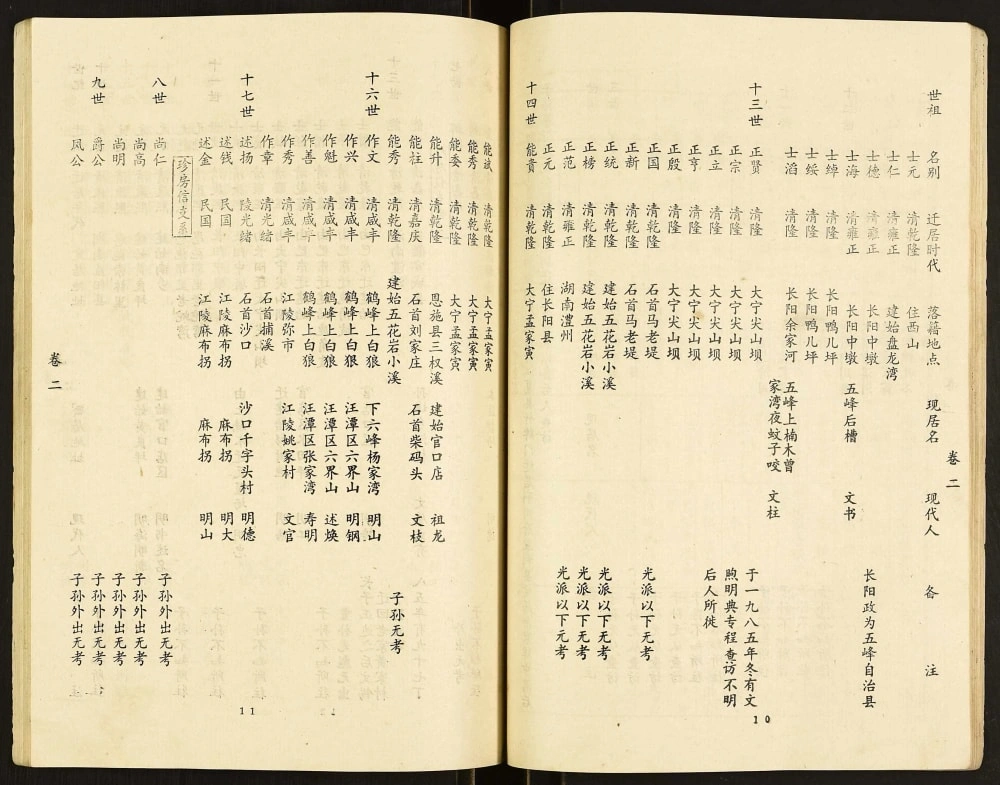 世祖 名别 迁居时代 落籍地点 现居名 现代人 备注
士元 清乾隆 住西山
士仁 清雍正 建始盘龙湾
士德 清雍正 长阳中墩
士海 清雍正 长阳中墩 五峰后槽 文书 长阳政为五峰自治县
士绰 清隆 长阳鸭儿坪
士绥 清隆 长阳鸭儿坪
士滔 清隆 长阳余家河 五峰上楠木曾家湾夜蚊子咬 文柱
十三世 正贤 清隆 大宁尖山坝 于一九八五年冬有文
正宗 清隆 大宁尖山坝 煦明典专程查访不明
正立 清隆 大宁尖山坝 后人所徙
正亨 清隆 大宁尖山坝
正殷 清隆 大宁尖山坝
正国 清乾隆 石首马老堤 光派以下无考
正新 清乾隆 石首马老堤
正统 清乾隆 建始五花岩小溪 光派以下元考
正榜 清乾隆 建始五花岩小溪 光派以下元考
正范 清雍正 湖南澧州 光派以下元考
正元 清乾隆 住长阳县
十四世 能贵 清乾隆 大宁孟家寅
卷二
10
能斌 清乾隆 大宁孟家寅
能秀 清乾隆 大宁孟家寅
能委 清乾隆 大宁孟家寅
能升 清乾隆 恩施县三权溪 建始官口店 祖龙
能柱 清嘉庆 石首刘家庄 石首柴码头 文枝
能秀 清乾隆 建始五花岩小溪 子孙无考
十六世 作文 清咸丰 鹤峰上白狼 下六峰杨家湾 明山
作兴 清咸丰 鹤峰上白狠 汪潭区六界山 明钢
作魁 清咸丰 鹤峰上白狼 汪潭区六界山 述焕
作善 清咸丰 鹤峰上白狼 汪潭区张家湾 寿明
作秀 清咸丰 江陵弥市 江陵姚家村 文官
作章 清光绪 石首捕溪
十七世 述扬 陵光绪 石首沙口 沙口千字头村 明德
述钱 民国 江陵麻布拐 麻布拐 明大
述金 民国 江陵麻布拐 麻布拐 明山
珍房信文系
八世 尚仁 子孙外出无考
尚高 子孙外出无考
尚明 子孙外出无考
九世 爵公 子孙外出无考
凤公 子孙外出无考
卷二
11